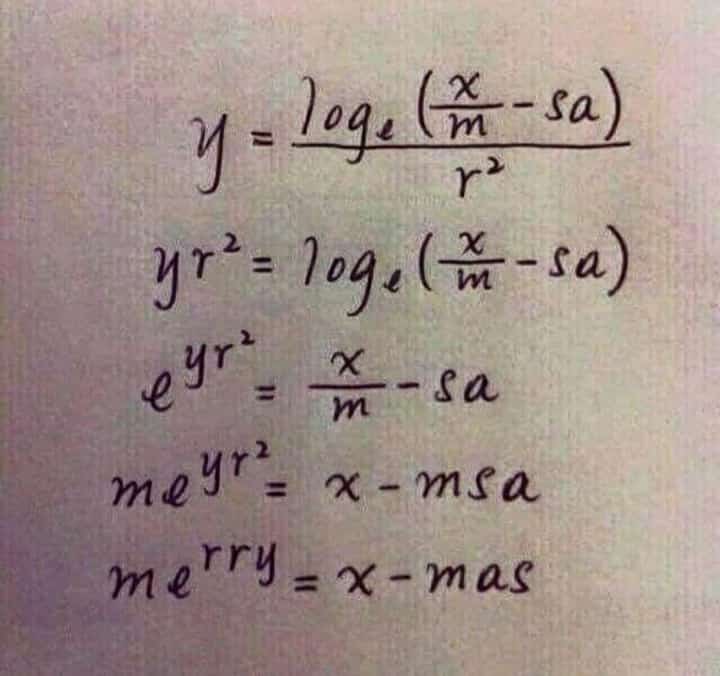 y = logₑ(x/m - sa)/r²
yr² = logₑ(x/m - sa)
e^(yr²) = x/m - sa
me^(yr²) = x - msa
me^(rry) = x - mas